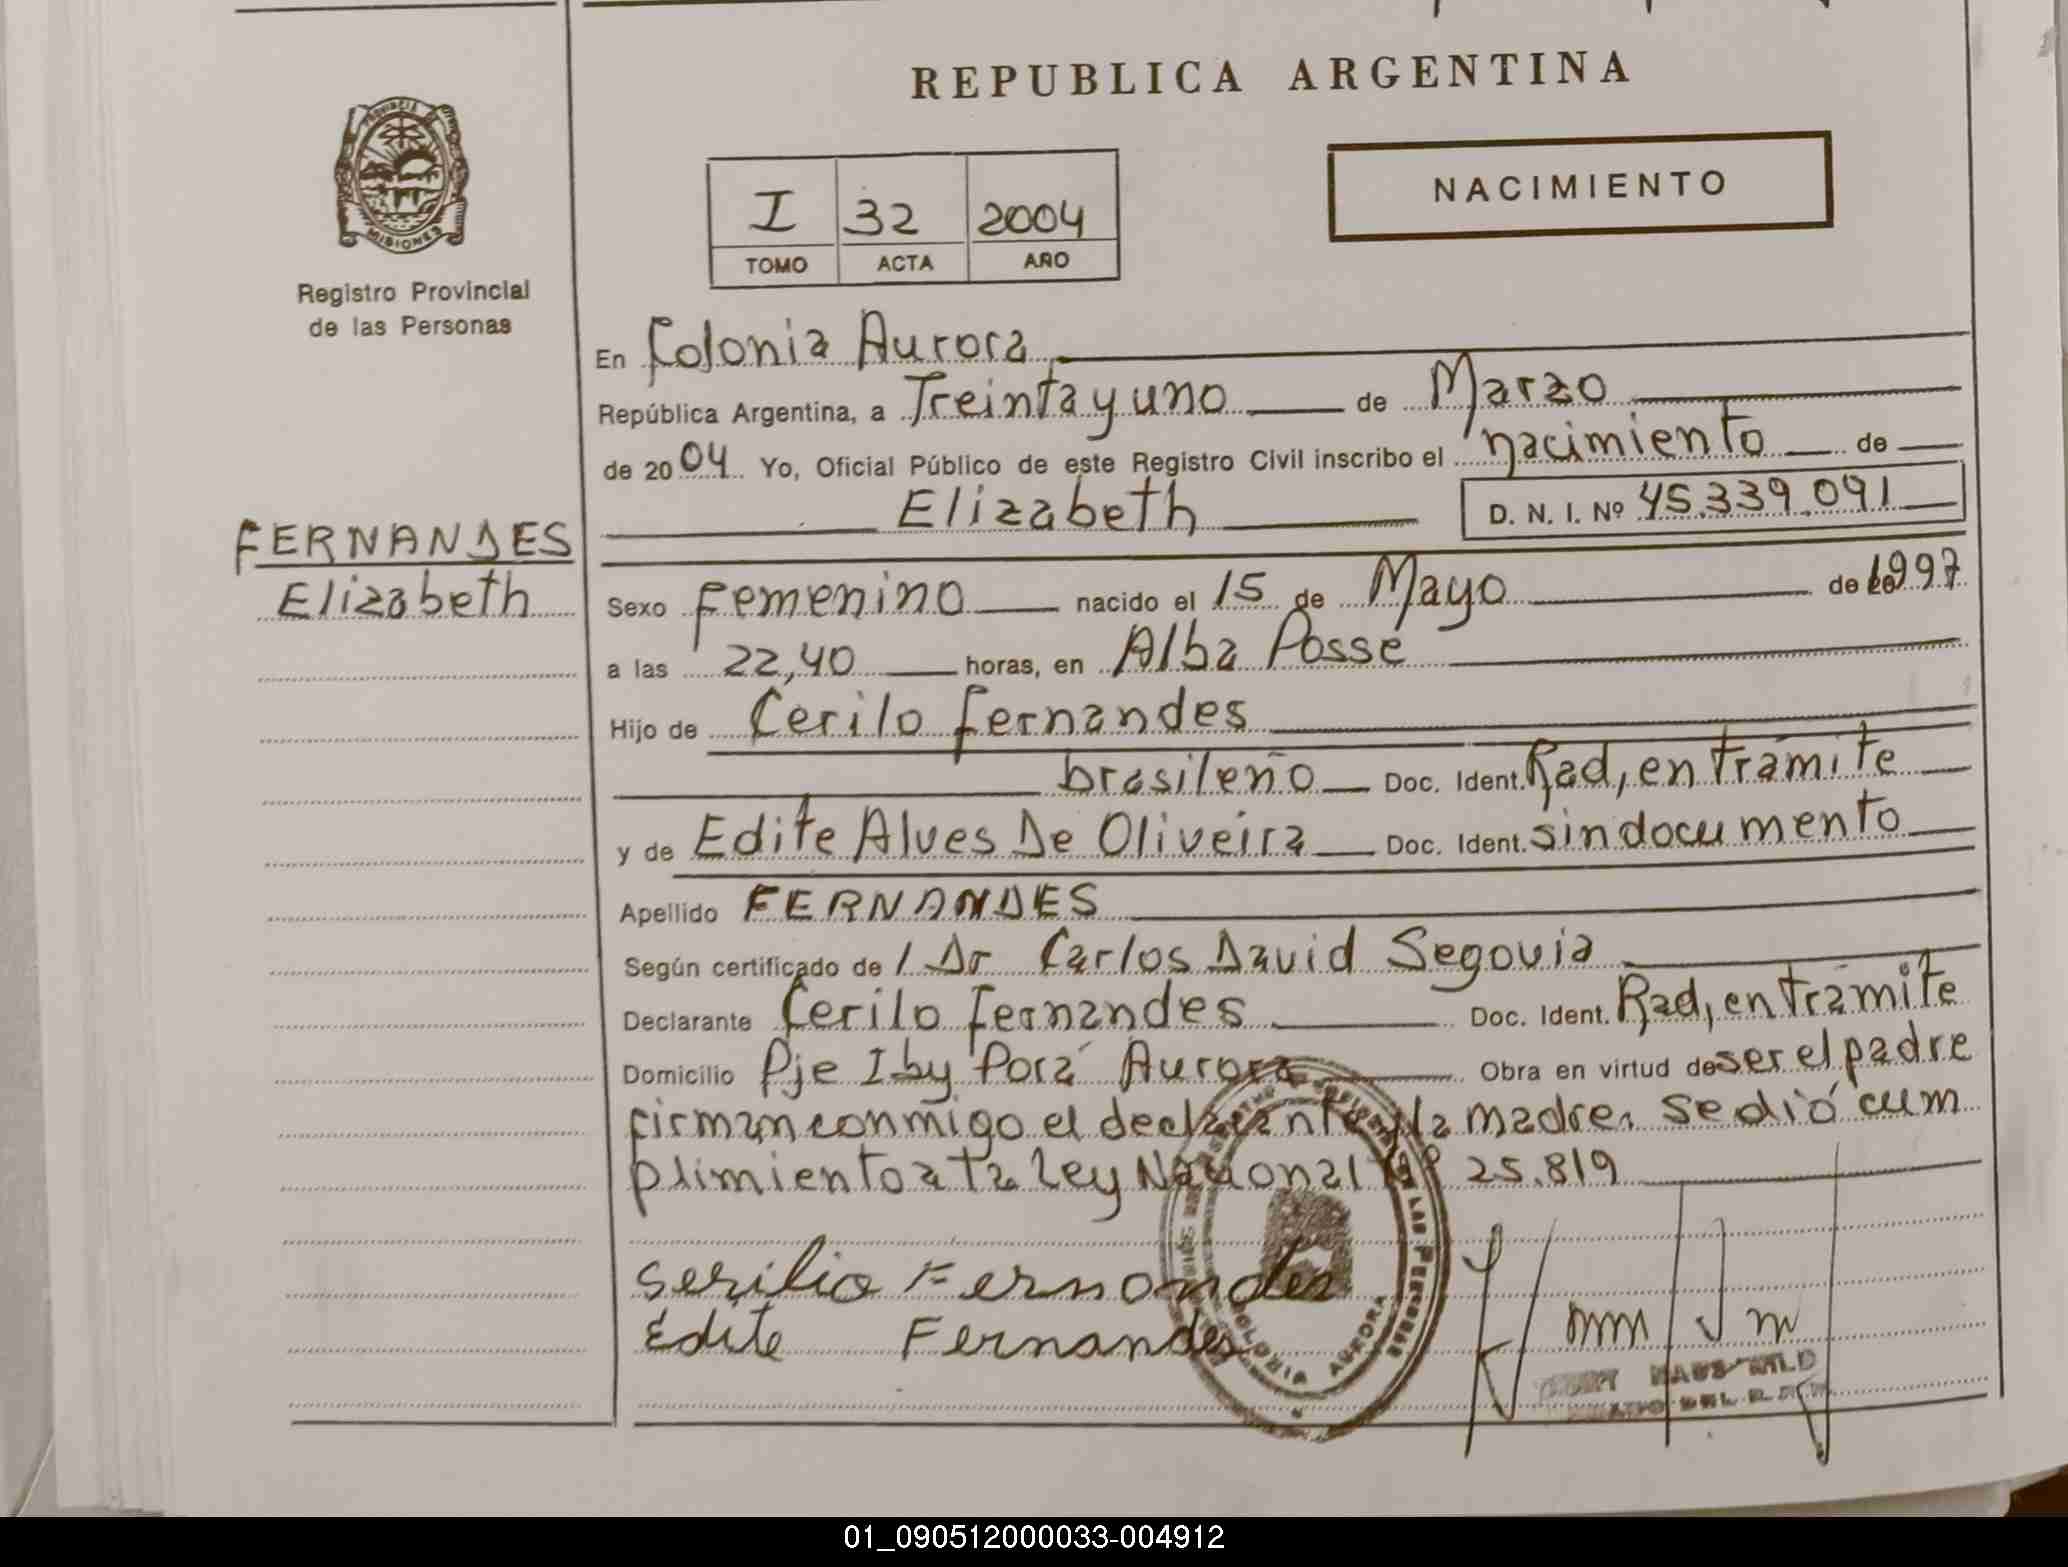 REPUBLICA ARGENTINA
PROVINCIA
MISIONES
Registro Provincial
de las Personas
NACIMIENTO
I 32 2004
TOMO ACTA AÑO
FERNANDES
Elizabeth
En Colonia Aurora
República Argentina, a Treinta y uno de Marzo
de 2004 Yo, Oficial Público de este Registro Civil inscribo el nacimiento de
Elizabeth D. N. I. Nº 45.339.091
Sexo Femenino nacido el 15 de Mayo de 1997
a las 22,40 horas, en Alba Posse
Hijo de Cerilo Fernandes
brasileño Doc. Ident. Rad, en tramite
y de Edite Alves De Oliveira Doc. Ident. sin documento
Apellido FERNANDES
Según certificado de / Dr Carlos David Segovia
Declarante Cerilo Fernandes Doc. Ident. Rad, en tramite
Domicilio Pje Iby Porá Aurora Obra en virtud de ser el padre
firman conmigo el declarante y la madre. se dió cum
plimiento a la Ley Nacional Nº 25.819
Serilio Fernandes
Edite Fernandes
COLONIA AURORA
DE LAS PERSONAS
01_090512000033-004912